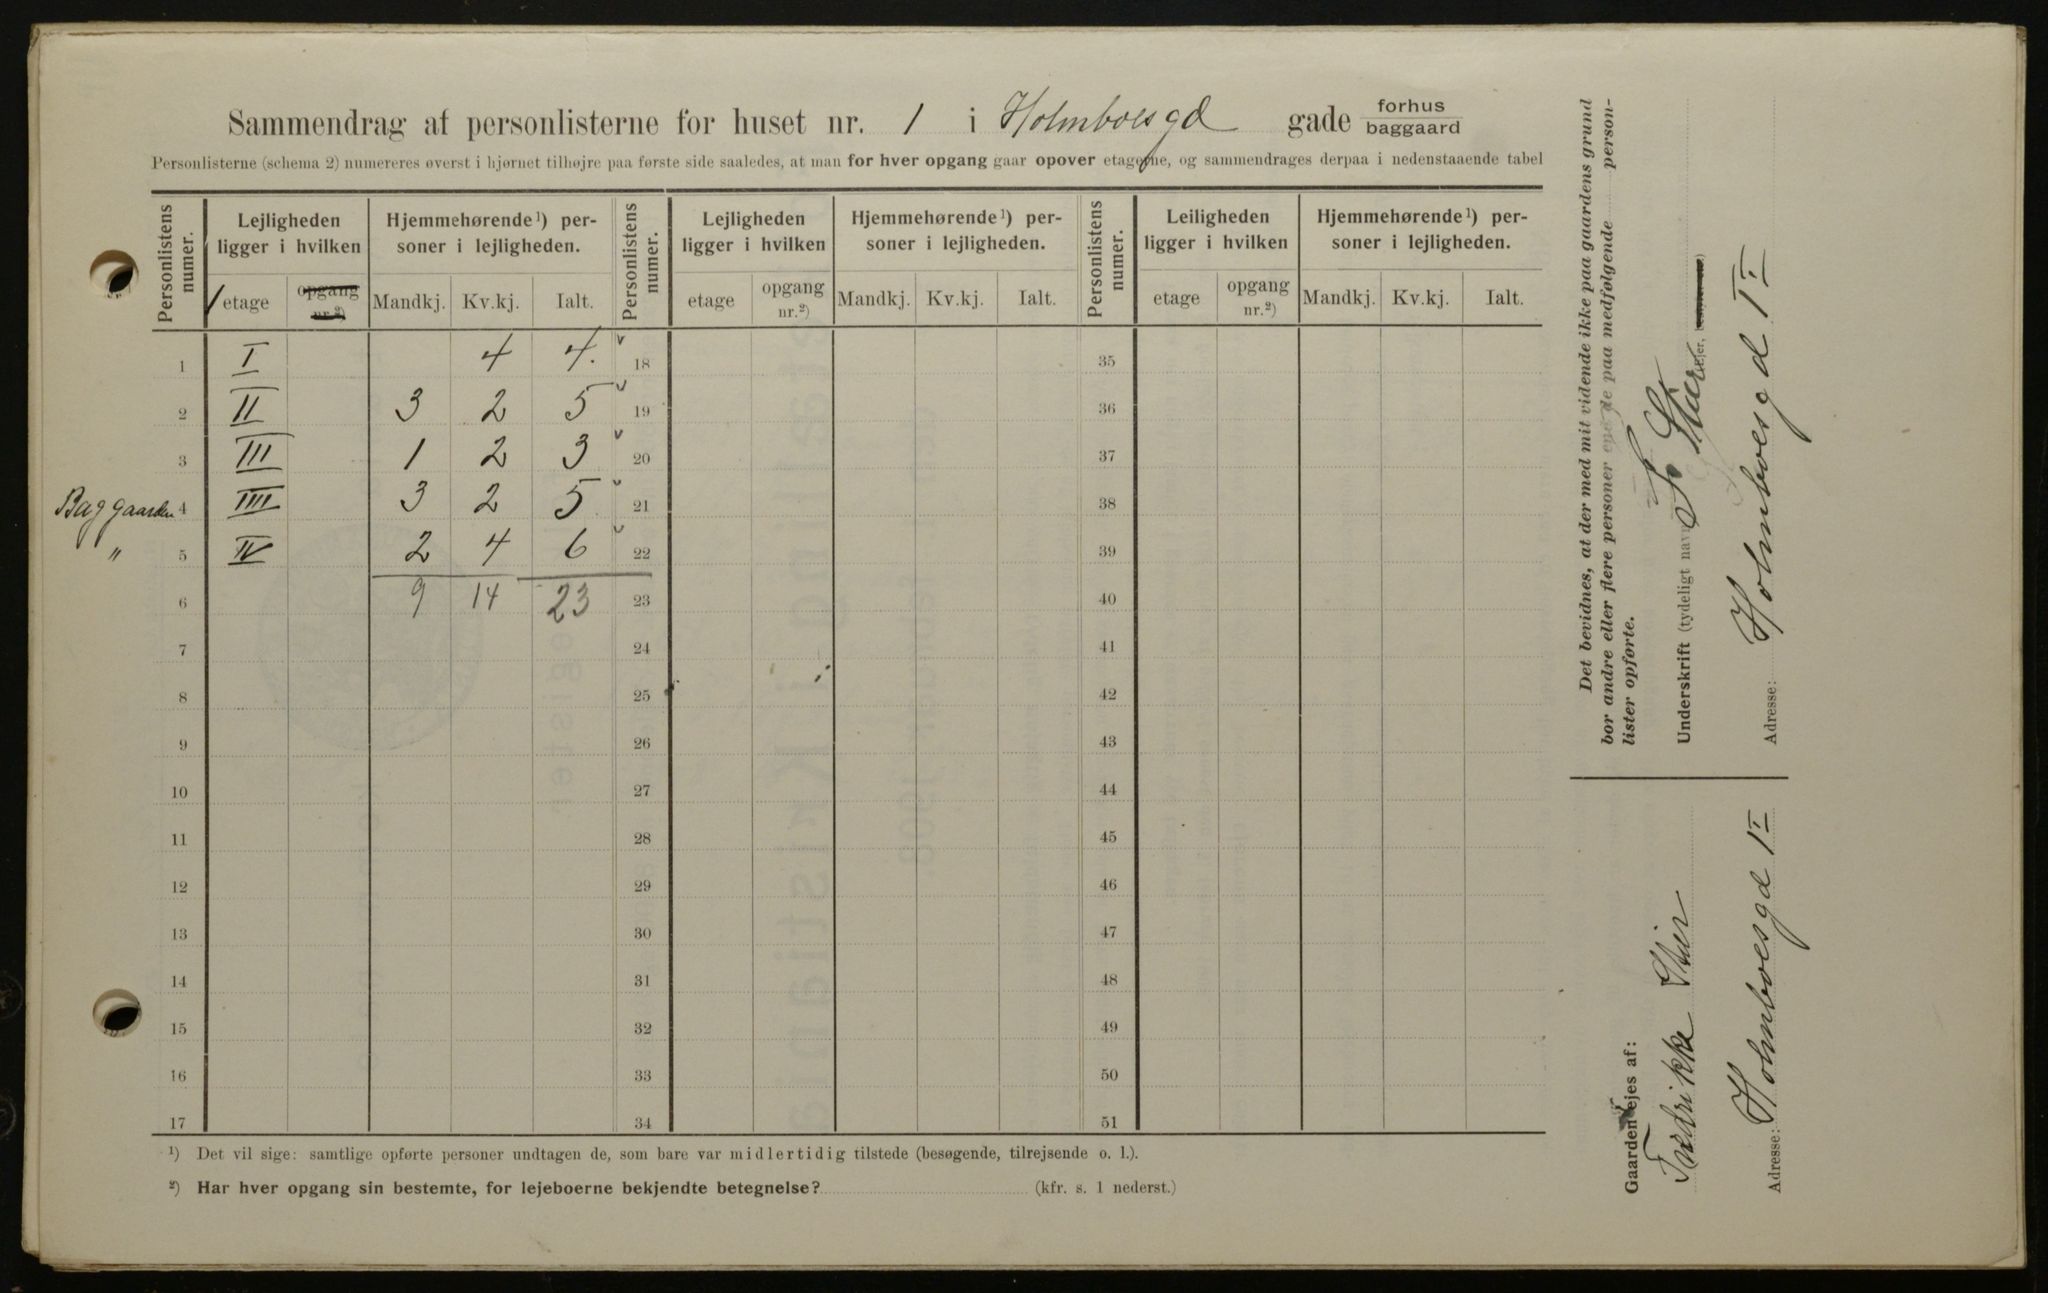 Sammendrag af personlisterne for huset nr. 1 i Holmboesgd gade forhus baggaard
Personlisterne (schema 2) numereres øverst i hjørnet tilhøjre paa første side saaledes, at man for hver opgang gaar opover etagerne, og sammendrages derpaa i nedenstaaende tabel
Personlistens numer. Lejligheden ligger i hvilken Hjemmehørende ¹) personer i lejligheden. Personlistens numer. Lejligheden ligger i hvilken Hjemmehørende ¹) personer i lejligheden. Personlistens numer. Leiligheden ligger i hvilken Hjemmehørende ¹) personer i lejligheden.
etage opgang nr.²) Mandkj. Kv.kj. Ialt. etage opgang nr.²) Mandkj. Kv.kj. Ialt. etage opgang nr.²) Mandkj. Kv.kj. Ialt.
1 I 4 4. 18 35
2 II 3 2 5 19 36
3 III 1 2 3 20 37
Baggaarden 4 III 3 2 5 21 38
" 5 IV 2 4 6 22 39
6 9 14 23 23 40
7 24 41
8 25 42
9 26 43
10 27 44
11 28 45
12 29 46
13 30 47
14 31 48
15 32 49
16 33 50
17 34 51
¹) Det vil sige: samtlige opførte personer undtagen de, som bare var midlertidig tilstede (besøgende, tilrejsende o. l.).
²) Har hver opgang sin bestemte, for lejeboerne bekjendte betegnelse? (kfr. s. 1 nederst.)
Det bevidnes, at der med mit vidende ikke paa gaardens grund
bor andre eller flere personer end de paa medfølgende person-
lister opførte.
Underskrift (tydeligt navn) F. Stier Ejer,
Adresse: Holmboesgd 1 I
Gaarden ejes af:
Fredrikke Stier
Adresse: Holmboesgd 1 I